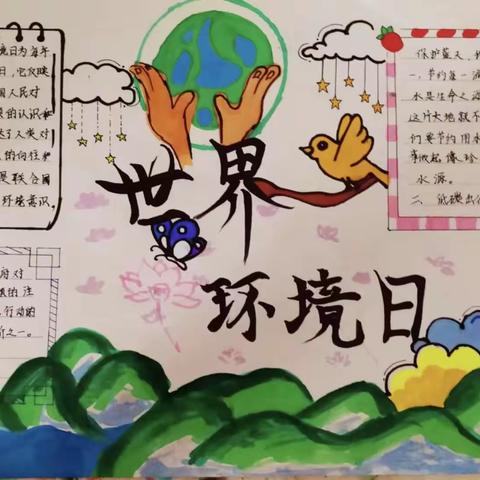 境日为每年
日，它反映
国人民对
的认识和
达了人类对
的向往
是联合国
环境意识
府对
的注
行动的
介之一。
世界
环境日
保护蓝天，
一、节约每一滴
水是生命之源
这片大地就不
们要节约用水
事做起 像珍
水源。
二、低碳出